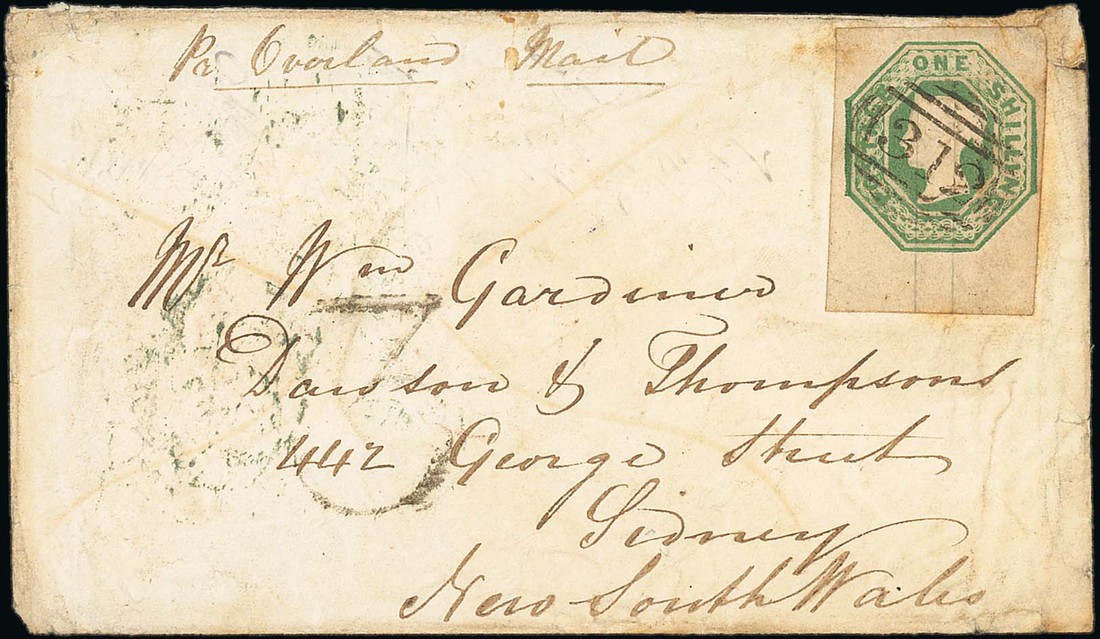 Pr Overland Mail
POSTAGE ONE SHILLING
312
Mr Wm Gardiner
Dawson & Thompsons
442 George Street
Sidney
New South Wales
3